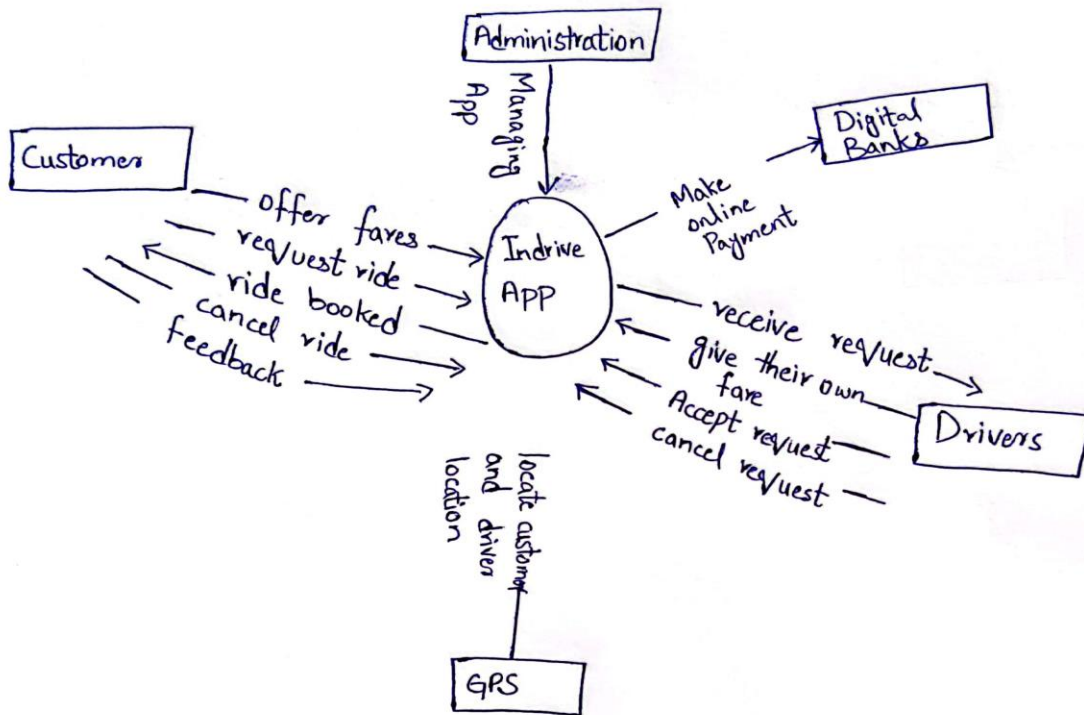 Administration
Managing
App
Digital
Banks
Customer
Make
online
Payment
offer fares
request ride
ride booked
cancel ride
feedback
Indrive
App
receive request
give their own
fare
Accept request
cancel request
Drivers
locate customer
and driver
location
GPS